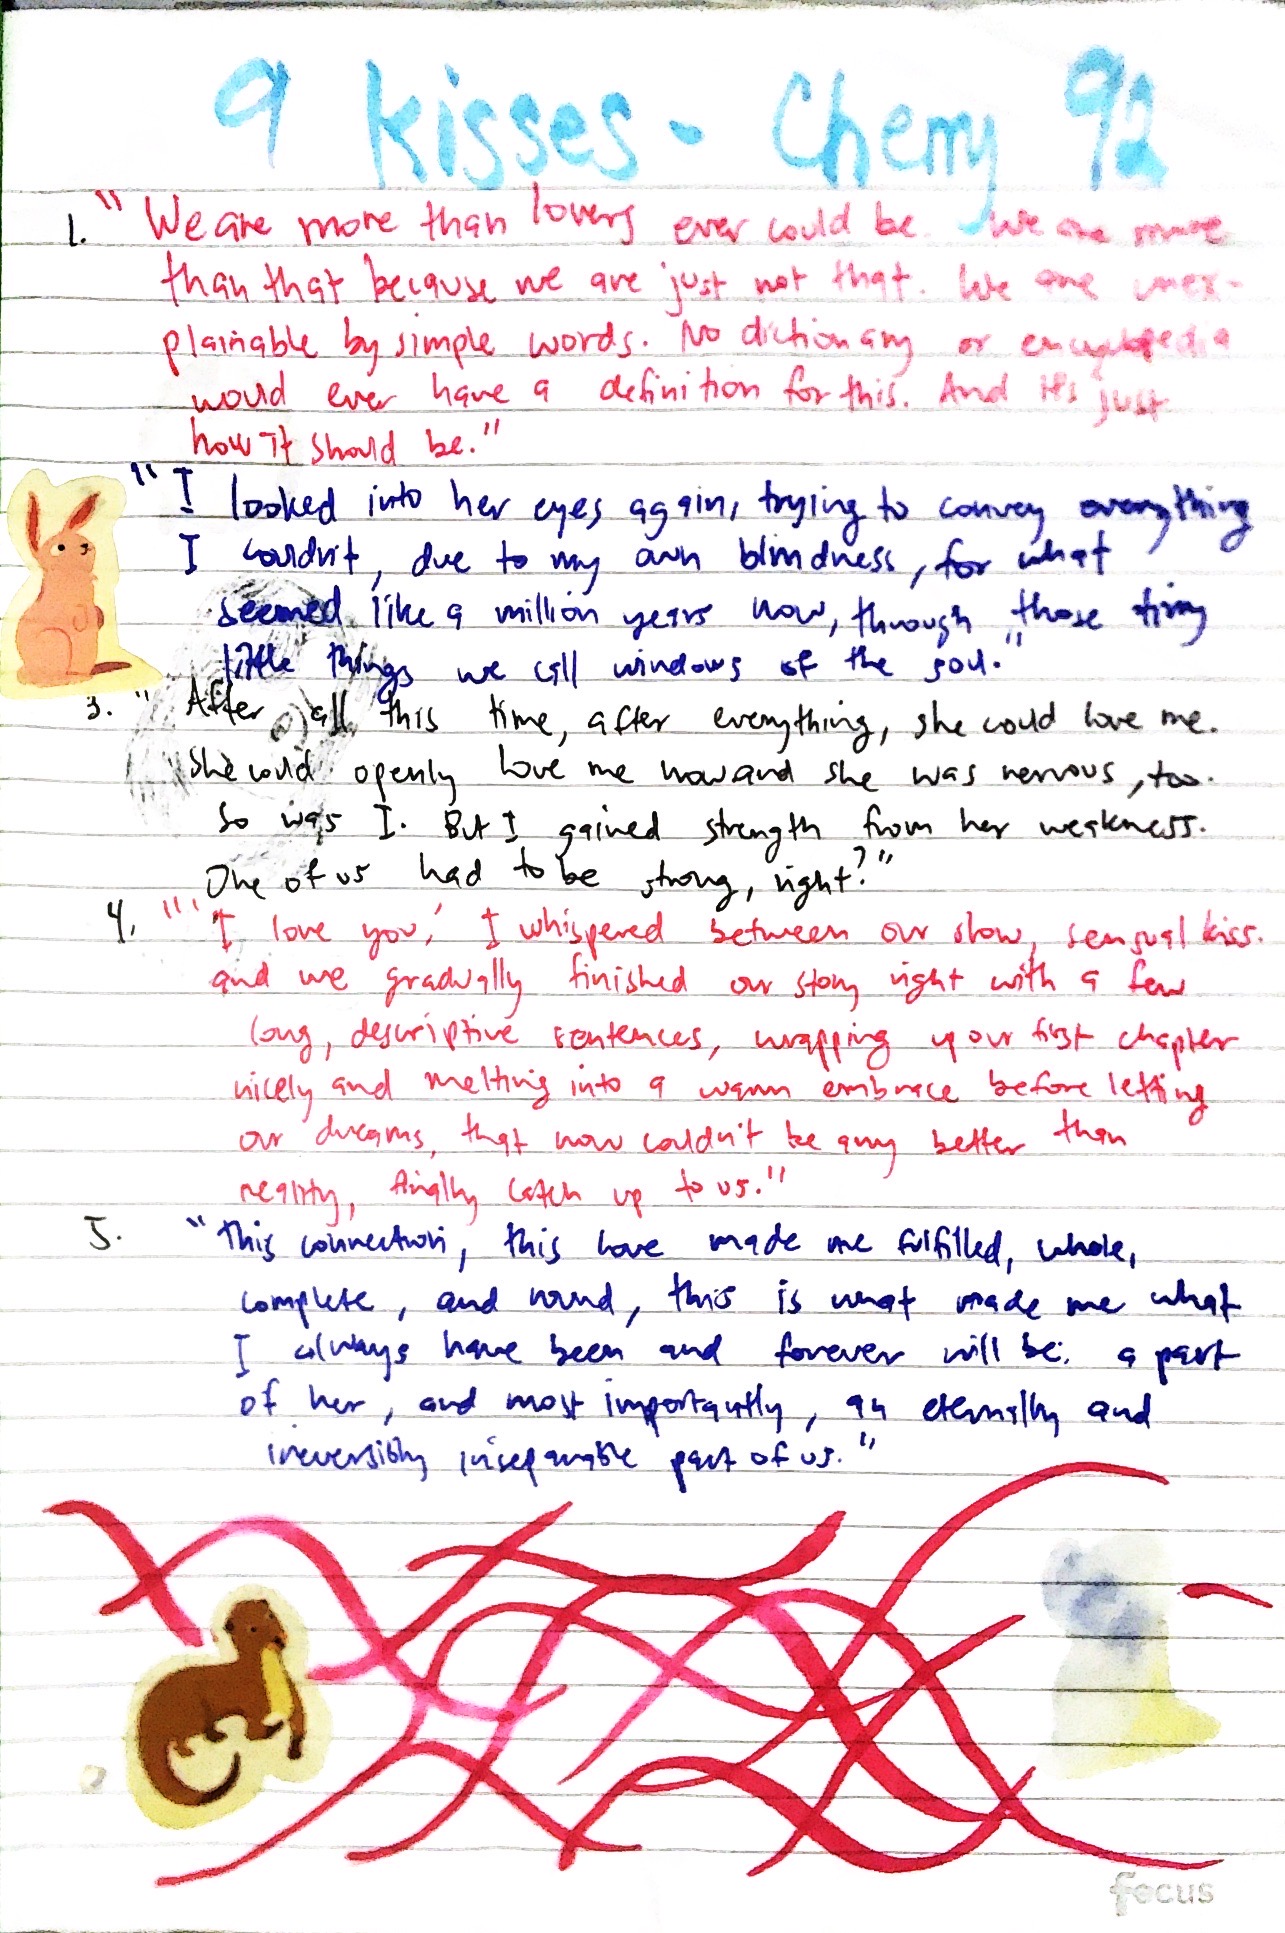 9 kisses - Cherry 92
1. "We are more than lovers ever could be. We are more
than that because we are just not that. We are unex-
plainable by simple words. No dictionary or encyclopedia
would ever have a definition for this. And it's just
how it should be."
"I looked into her eyes again, trying to convey everything
I couldn't, due to my own blindness, for what
seemed like a million years now, through those tiny
little things we call windows of the soul."
3. "After all this time, after everything, she could love me.
She could openly love me now and she was nervous, too.
So was I. But I gained strength from her weakness.
One of us had to be strong, right?"
4. "'I love you,' I whispered between our slow, sensual kiss.
and we gradually finished our story right with a few
long, descriptive sentences, wrapping up our first chapter
nicely and melting into a warm embrace before letting
our dreams, that now couldn't be any better than
reality, finally catch up to us."
5. "This connection, this love made me fulfilled, whole,
complete, and round, this is what made me what
I always have been and forever will be: a part
of her, and most importantly, an eternally and
irreversibly inseparable part of us."
Focus